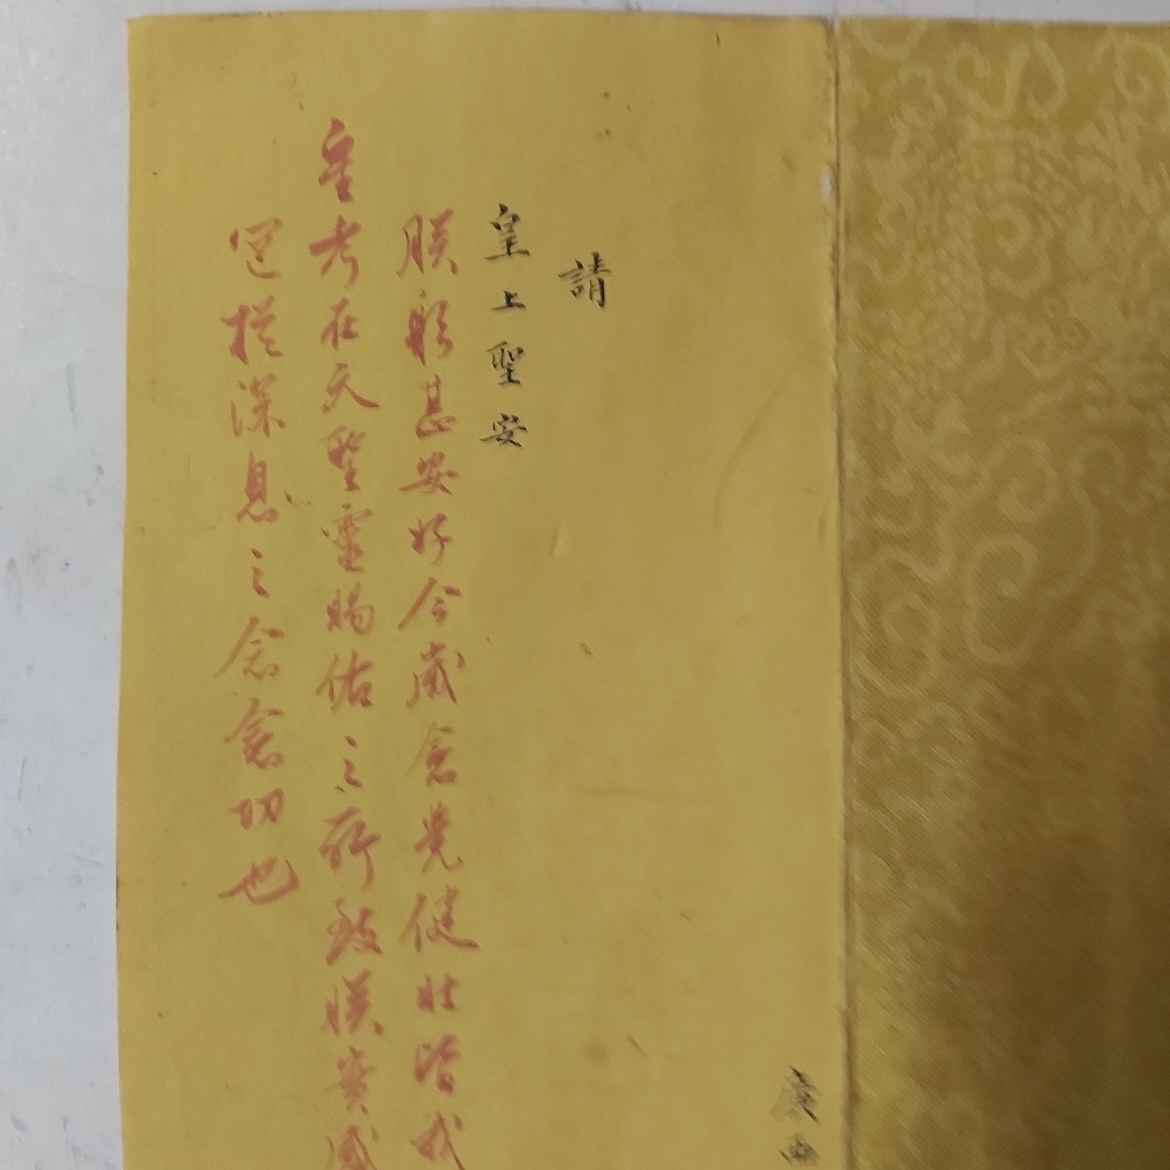 廣
請
皇上聖安
朕躬甚安好今歲愈覺健壯皆我
皇考在天聖靈賜佑之所致朕實感
罔極深恩之念愈切也